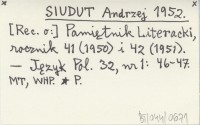 SIUDUT Andrzej 1952.
[Rec. o:] Pamiętnik Literacki,
rocznik 41 (1950) i 42 (1951).
— Język Pol. 32, nr 1: 46-47.
MT, WHP. * P.